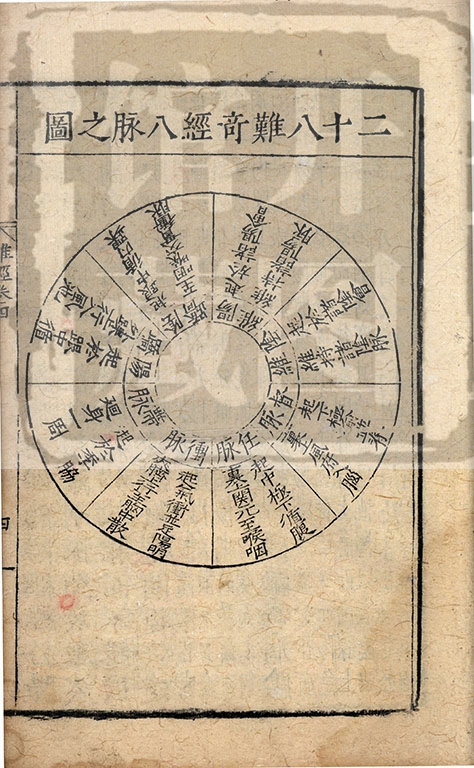 二十八難奇經八脉之圖
陽維
起於諸陽會
維持諸陽脉
陰維
起於諸陰會
維持諸陰脉
督脉
起下極並脊
裏上風府入腦
任脉
起中極下循腹
裏關元至喉咽
衝脉
起氣衝並足陽明
夾臍行至胸中散
帶脉
起於季脇
迴身一周
陽蹻
起於跟中循
外踝上行入風池
陰蹻
起跟中循內踝
至咽喉交貫衝脉
難經卷四
四